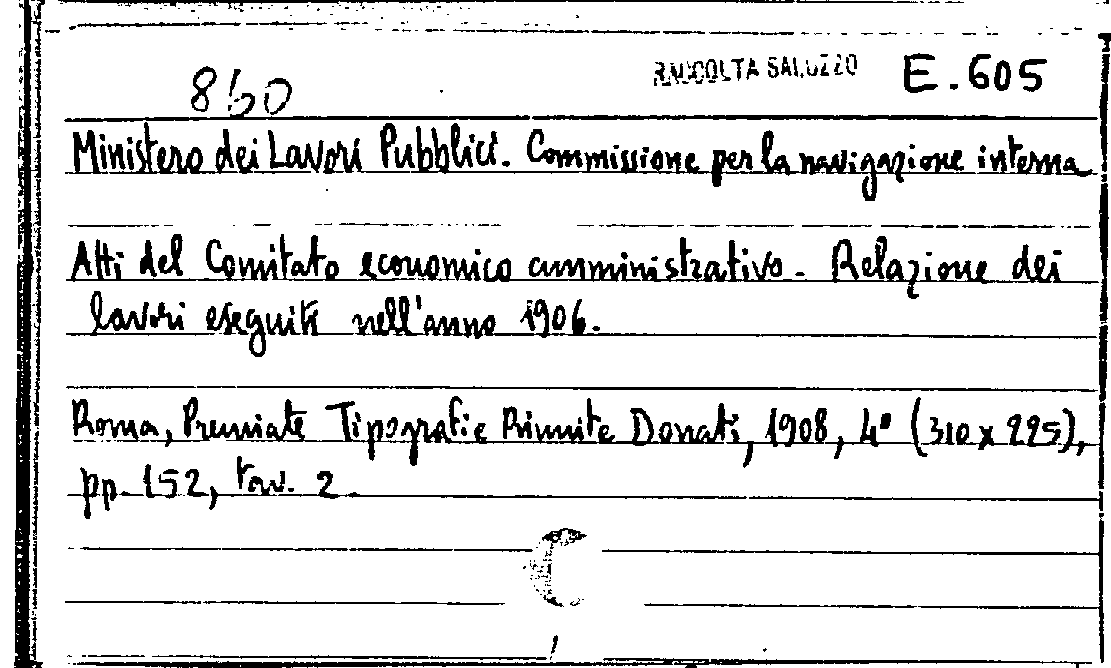 860 RACCOLTA SALUZZO E.605
Ministero dei Lavori Pubblici. Commissione per la navigazione interna
Atti del Comitato economico amministrativo. Relazione dei
lavori eseguiti nell'anno 1906.
Roma, Premiate Tipografie Riunite Donati, 1908, 4° (310 x 225),
pp. 152, tav. 2.